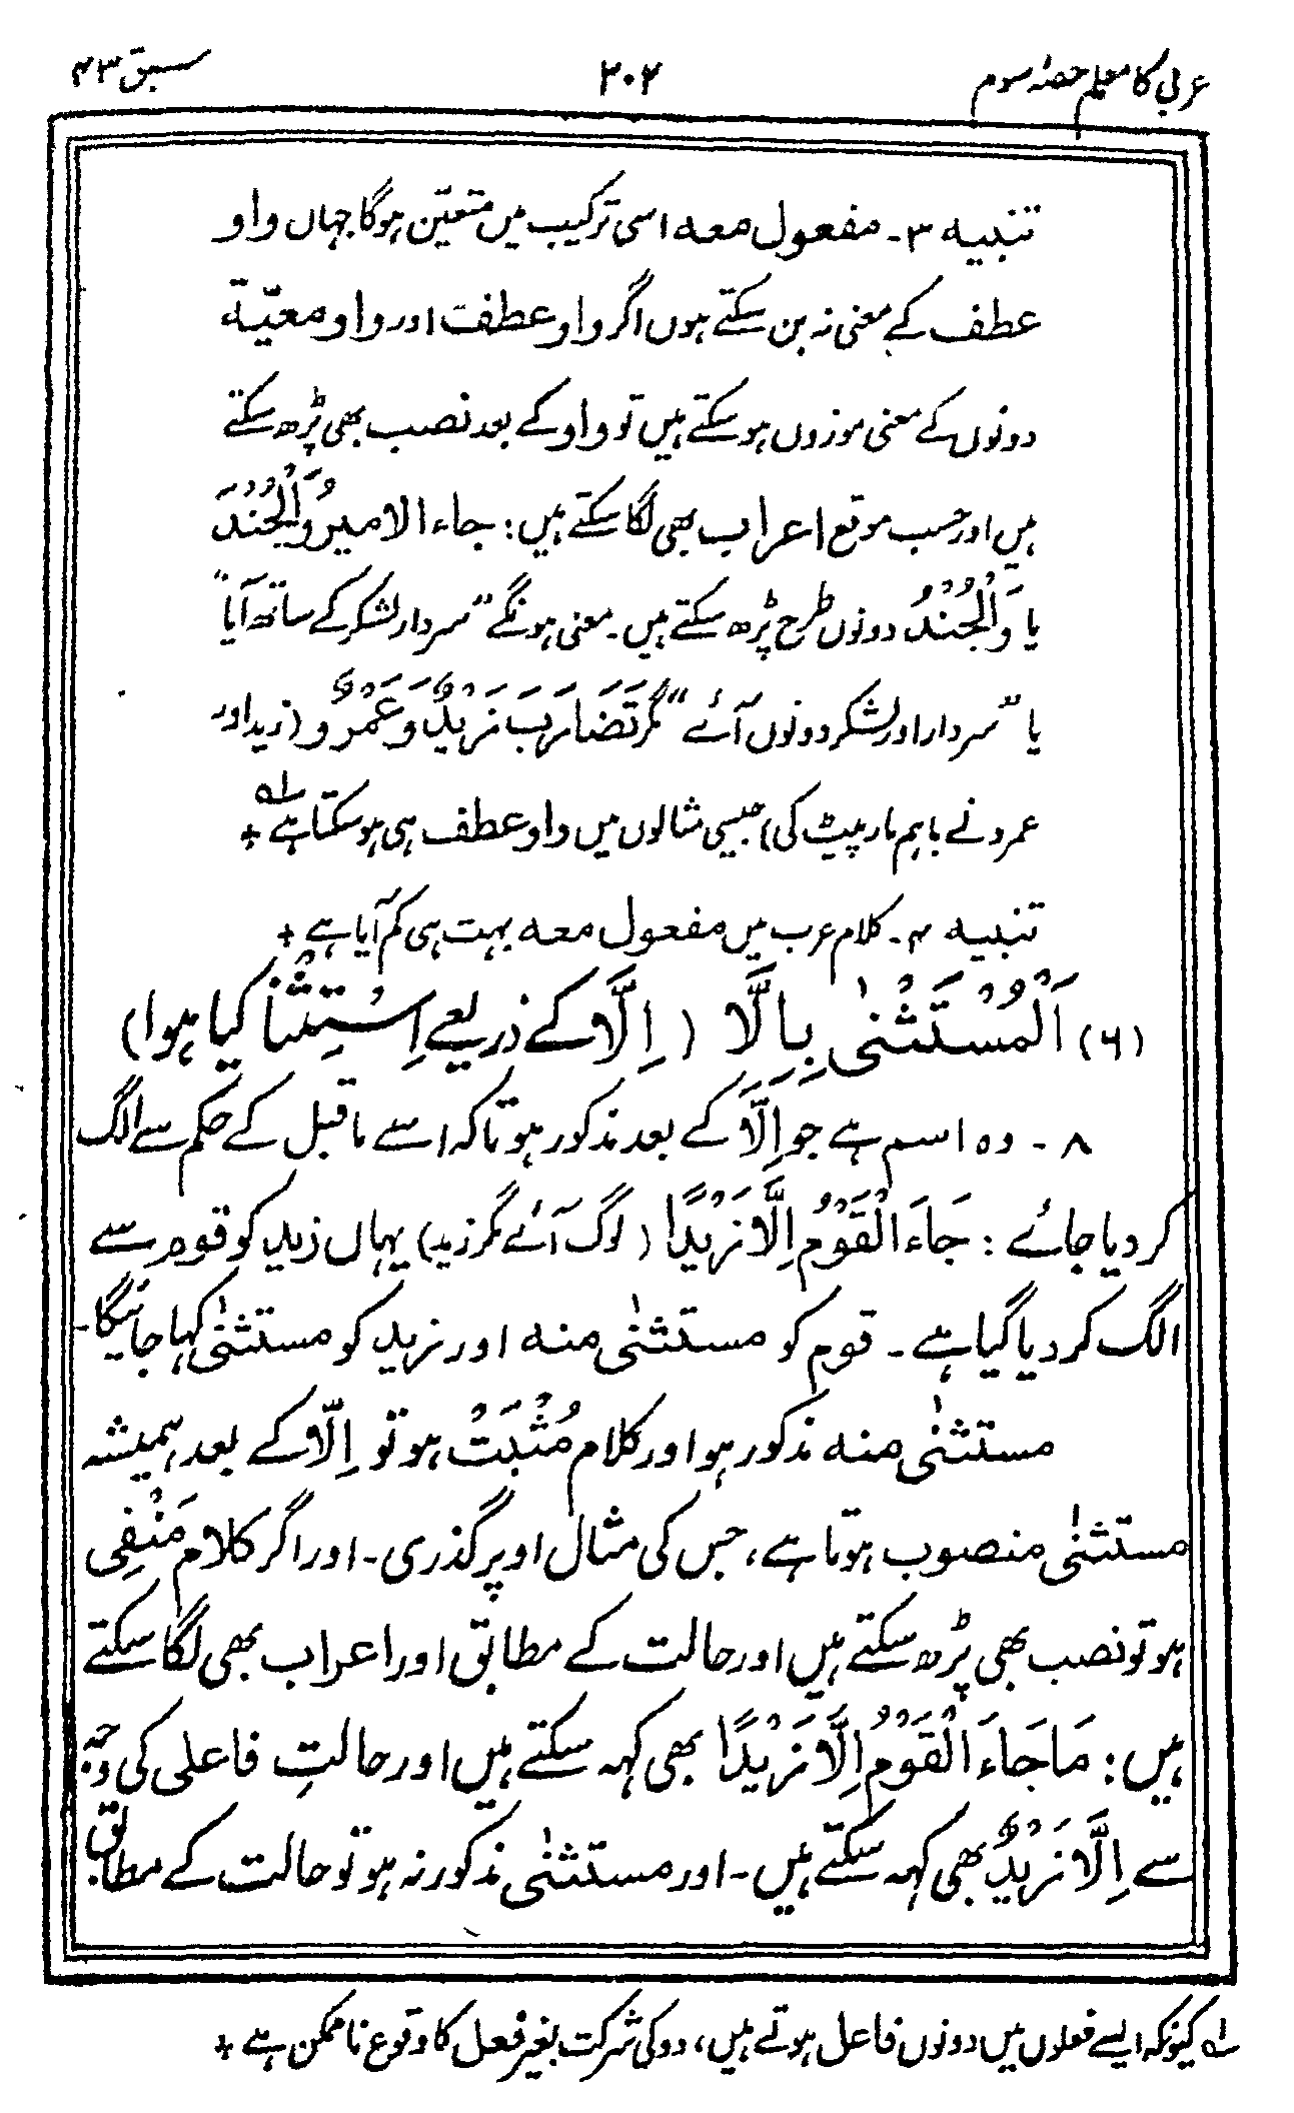 عربی کا معلم حصہ سوم ۲۰۲ سبق ۴۳
تنبیہ ۳۔ مفعول معہ اسی ترکیب میں متعیّن ہوگا جہاں واو
عطف کے معنی نہ بن سکتے ہوں اگر واو عطف اور واو معیّة
دونوں کے معنی موزوں ہو سکتے ہیں تو واو کے بعد نصب بھی پڑھ سکتے
ہیں اور حسب موقع اعراب بھی لگا سکتے ہیں: جاء الامیرُ وَالْجُنْدَ
یا وَالْجُنْدُ دونوں طرح پڑھ سکتے ہیں۔ معنی ہونگے "سردار لشکر کے ساتھ آیا"
یا "سردار اور لشکر دونوں آئے" مگر تَضَارَبَ زَیْدٌ وَعَمْرٌو (زید اور
عمرو نے باہم مار پیٹ کی) جیسی مثالوں میں واو عطف ہی ہو سکتا ہے ۱؎ +
تنبیہ ۴۔ کلام عرب میں مفعول معہ بہت ہی کم آیا ہے +
(۶) اَلْمُسْتَثْنٰی بِاِلَّا (اِلَّا کے ذریعے اِسْتِثْنَا کیا ہوا)
۸ ۔ وہ اسم ہے جو اِلَّا کے بعد مذکور ہو تاکہ اسے ماقبل کے حکم سے الگ
کر دیا جائے: جَاءَ الْقَوْمُ اِلَّا زَیْدًا (لوگ آئے مگر زید) یہاں زید کو قوم سے
الگ کر دیا گیا ہے۔ قوم کو مستثنٰی منہ اور زید کو مستثنٰی کہا جائیگا۔
مستثنٰی منہ مذکور ہو اور کلام مُثْبَتْ ہو تو اِلَّا کے بعد ہمیشہ
مستثنٰی منصوب ہوتا ہے، جس کی مثال اوپر گذری۔ اور اگر کلام مَنْفِی
ہو تو نصب بھی پڑھ سکتے ہیں اور حالت کے مطابق اور اعراب بھی لگا سکتے
ہیں: مَا جَاءَ الْقَوْمُ اِلَّا زَیْدًا بھی کہہ سکتے ہیں اور حالتِ فاعلی کی وجہ
سے اِلَّا زَیْدٌ بھی کہہ سکتے ہیں۔ اور مستثنٰی مذکور نہ ہو تو حالت کے مطابق
۱؎ کیونکہ ایسے فعلوں میں دونوں فاعل ہوتے ہیں، دو کی شرکت بغیر فعل کا وقوع ناممکن ہے +